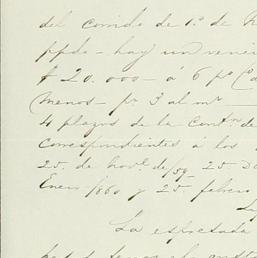 del corrido de 1.º de
ppdo - hay un venci
$ 20.000 - á 6 p%
menos - pr 3 al ms
4 plazos de la Contn de
correspondientes a los
25. de novl. de/59 - 25 D
Enero /860 y 25 febrero
La espresada